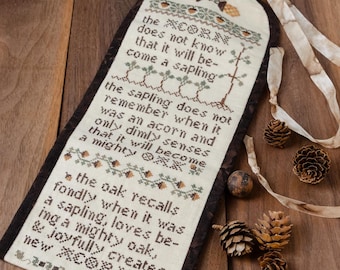 the ACORN
does not know
that it will be-
come a sapling
the sapling does not
remember when it
was an acorn and
only dimly senses
that it will become
a mighty OAK
the oak recalls
fondly when it was
a sapling, loves be-
ing a mighty oak,
& joyfully creates
new ACORNS